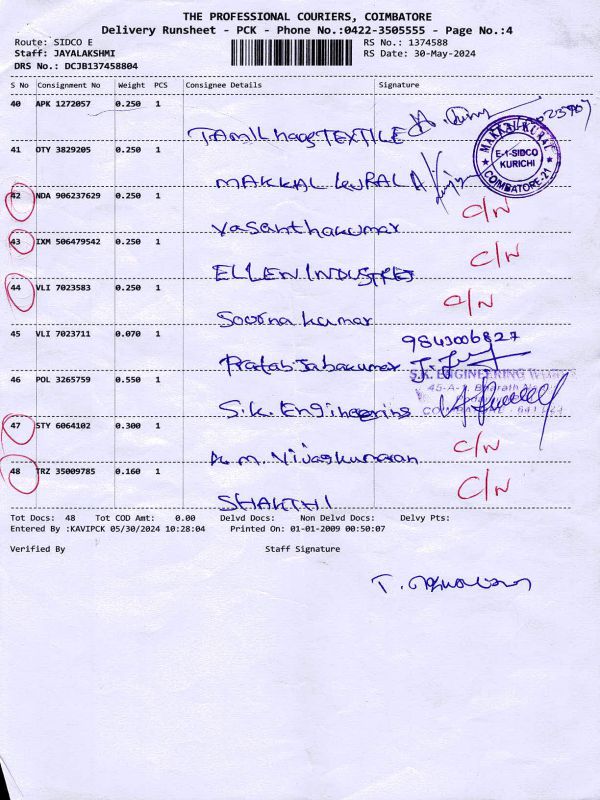 THE PROFESSIONAL COURIERS, COIMBATORE
Delivery Runsheet - PCK - Phone No.:0422-3505555 - Page No.:4
Route: SIDCO E RS No.: 1374588
Staff: JAYALAKSHMI RS Date: 30-May-2024
DRS No.: DCJB137458804
S No Consignment No Weight PCS Consignee Details Signature
40 APK 1272057 0.250 1
TAMIL haag TEXTILE
41 OTY 3829205 0.250 1
MAKKAL KURAL
MAKKAL KURAL
E-1-SIDCO
KURICHI
COIMBATORE-21
42 NDA 906237629 0.250 1 C/N
Vasanthakumar
43 IXM 506479542 0.250 1 C/N
ELLEN INDUSTRIES
44 VLI 7023583 0.250 1 C/N
Soorna kumar
45 VLI 7023711 0.070 1 9843006827
Pratab Jabakumar
46 POL 3265759 0.550 1 S.K. ENGINEERING WORKS
S.K. Engineering
47 STY 6064102 0.300 1 C/N
A. M. Vijaykumaran
48 TRZ 35009785 0.160 1 C/N
SHAKTHI
Tot Docs: 48 Tot COD Amt: 0.00 Delvd Docs: Non Delvd Docs: Delvy Pts:
Entered By :KAVIPCK 05/30/2024 10:28:04 Printed On: 01-01-2009 00:50:07
Verified By Staff Signature